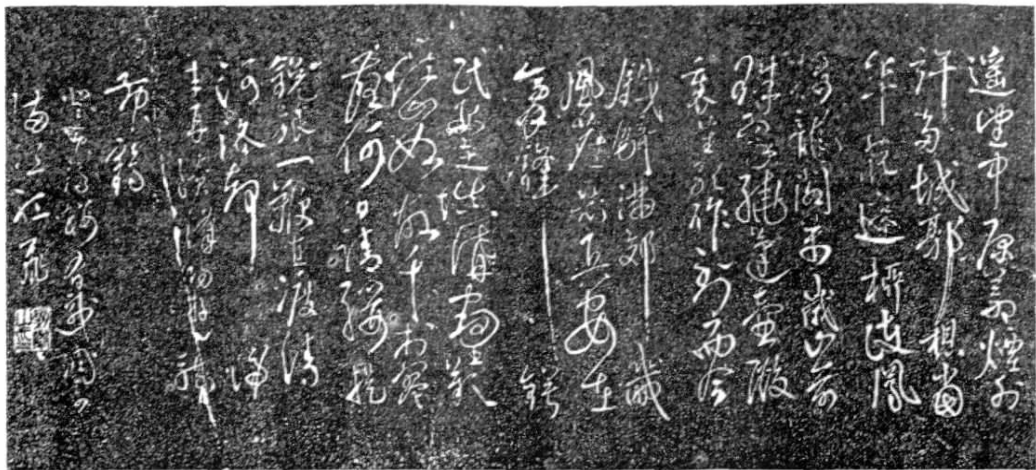 遥望中原荒煙外
許多城郭想當
年花遮柳護鳳
樓龍閣万歲山前
珠翠繞蓬壺殿
裏笙歌作到而今
鐵騎滿郊畿
風塵惡兵安在
膏鋒鍔
民安在填溝壑歎
江山如故千村寥
落何日請纓提
銳旅一鞭直渡清
河洛却歸
来再續漢陽遊騎
黃鶴
登黃鶴樓有感
滿江紅飛